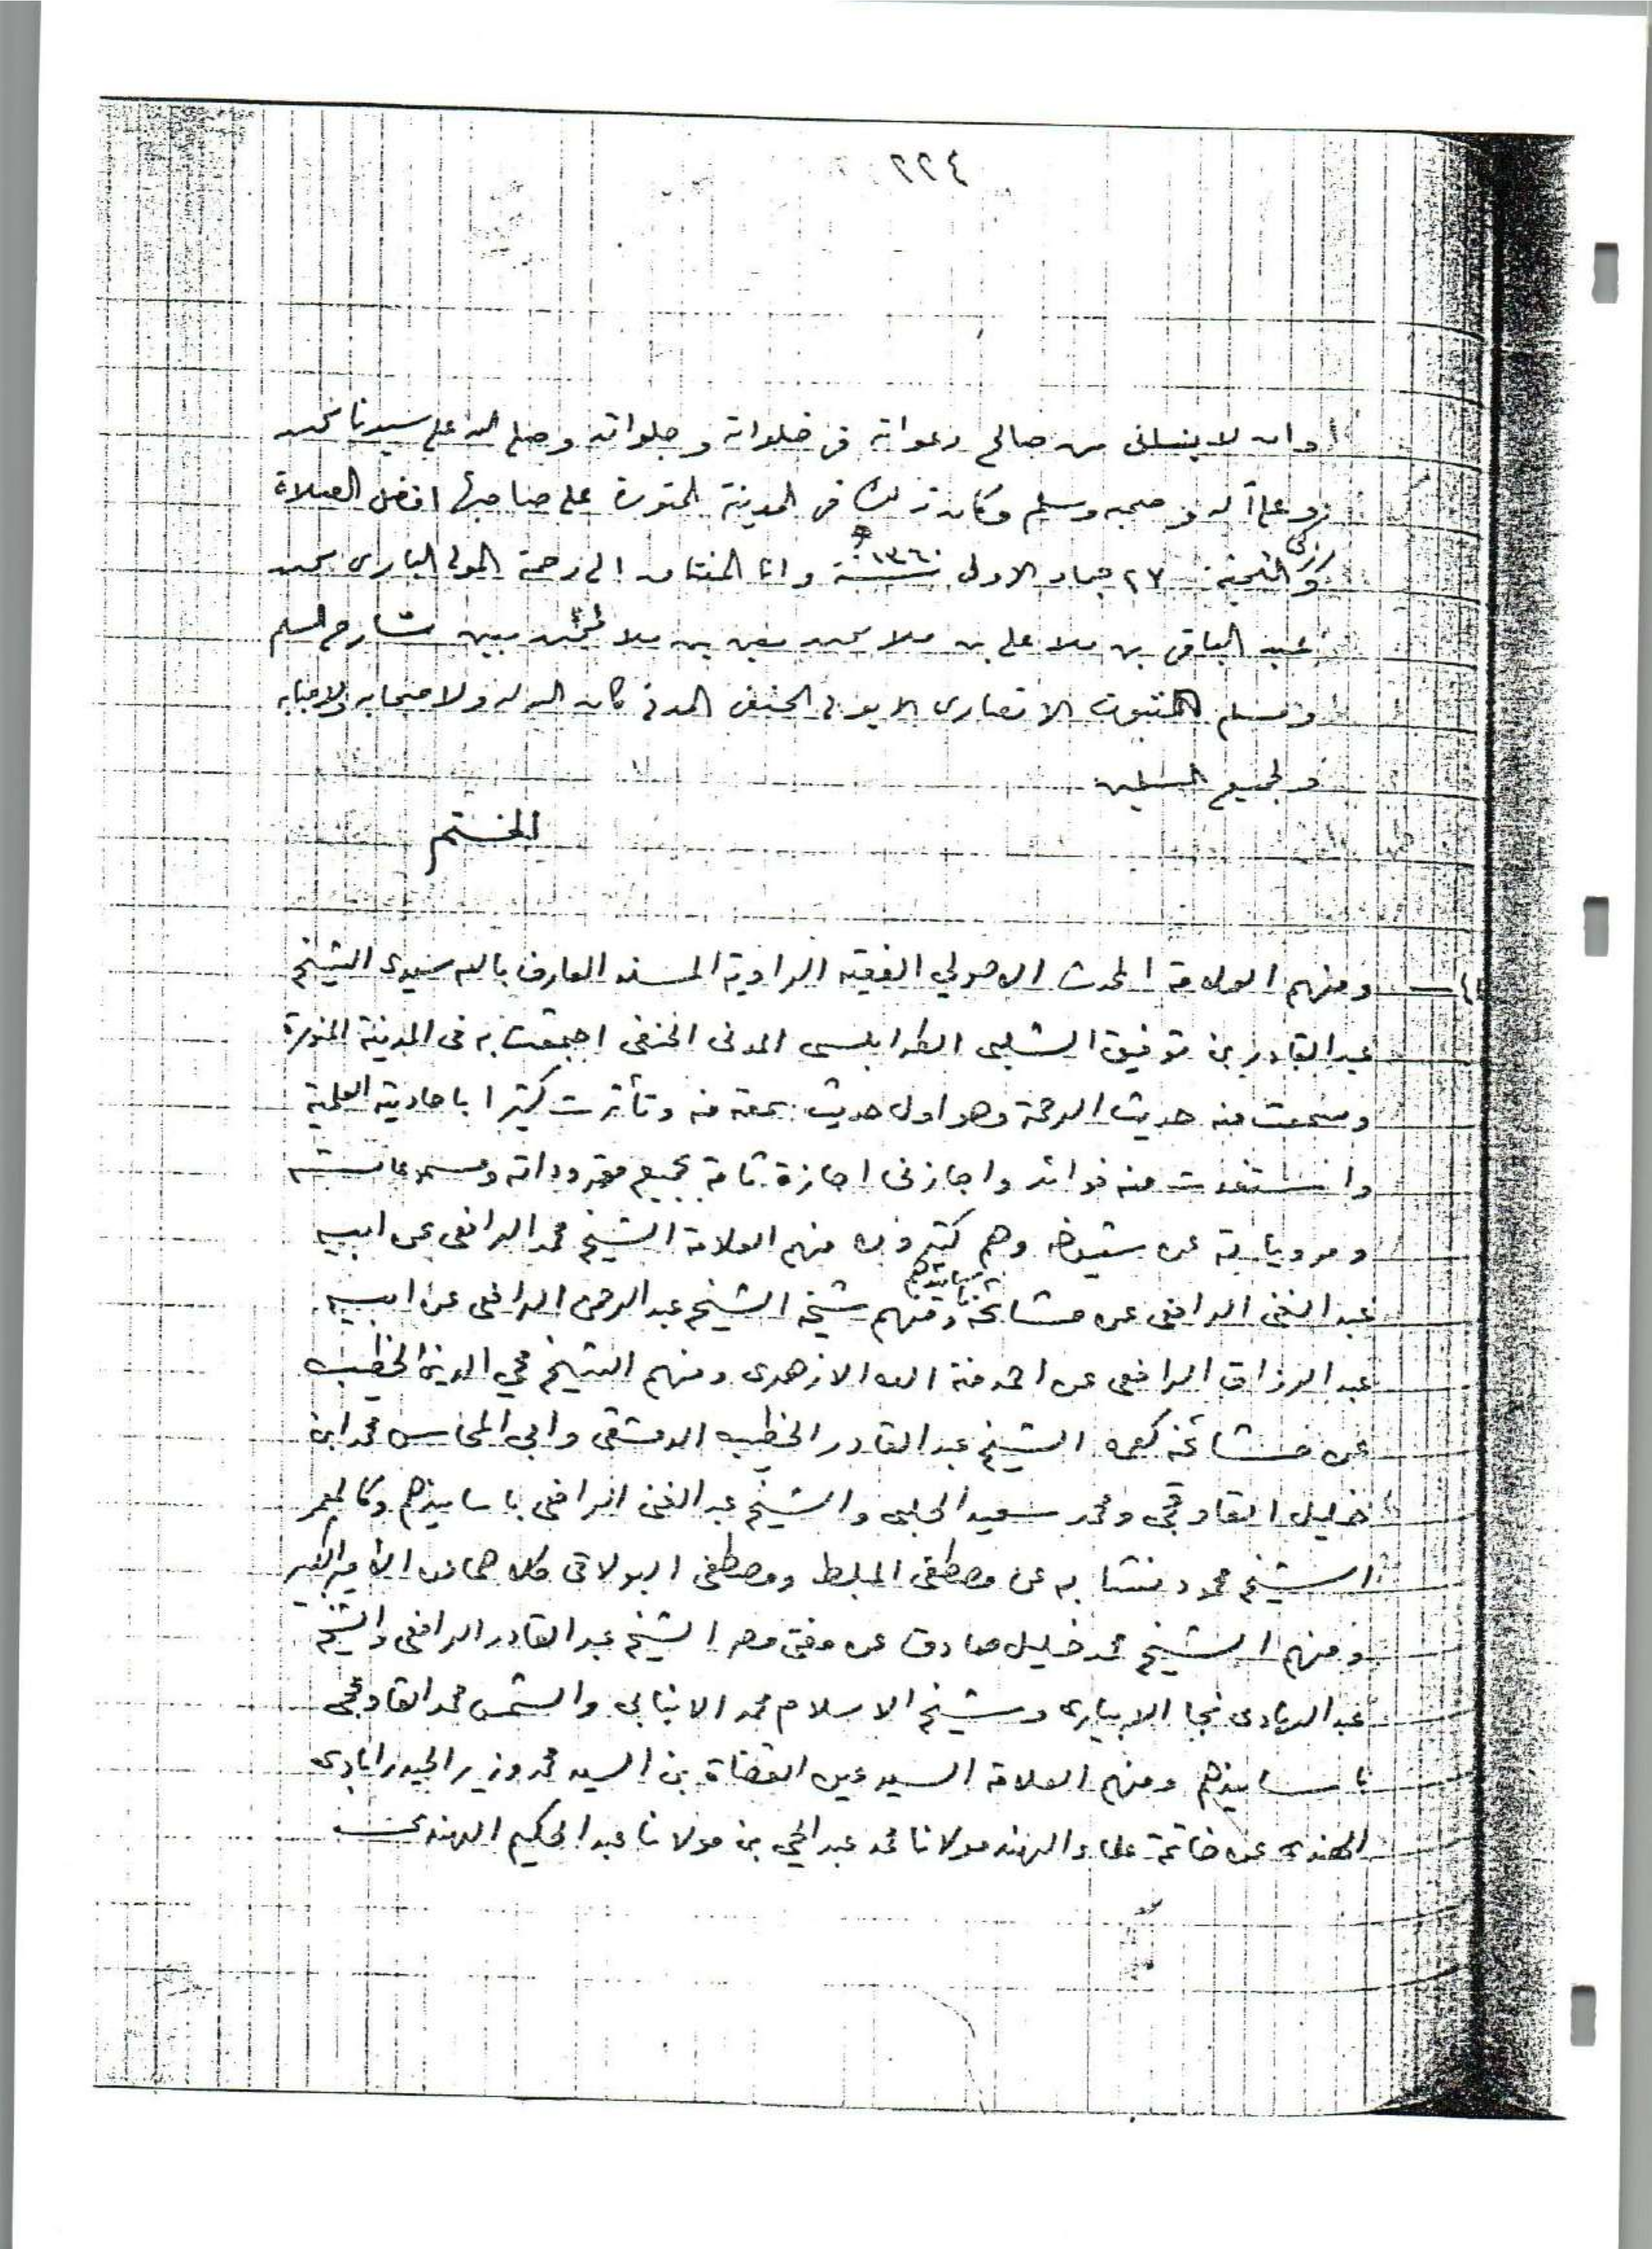 ٢٢٤
وان لا ينسانى من صالح دعواته فى خلواته و جلواته وصلى الله على سيدنا محمد
وعلى آله و صحبه وسلم وكان ذلك فى المدينة المنورة على صاحبها افضل الصلاة
وازكى التحية ٢٧ جماد الاولى سنة ١٣٦٠ وانا المفتاق الى رحمة المولى البارى محمد
عبد الباقى بن ملا على بن ملا محمد معين بن ملا محمد مبين شارح السلم
ومسلم الثبوت الانصارى الايوبى الحنفى المدنى كان الله له ولاصحابه ولاحبابه
ولجميع المسلمين
الختم
ومنهم العلامة المحدث الاصولي الفقيه الراوية المسند العارف بالله سيدى الشيخ
عبد القادر بن توفيق الشلبى الطرابلسى المدنى الحنفى اجتمعت به فى المدينة المنورة
وسمعت منه حديث الرحمة وهو اول حديث سمعته منه وتأثرت كثيرا باحاديثه العلمية
واستفدت منه فوائد واجازنى اجازة تامة بجميع مقروداته ومسموعاته
ومروياته عن شيوخه وهم كثيرون منهم العلامة الشيخ محمد الرافعى عن ابيه
عبد الغنى الرافعى عن مشائخه باسانيدهم ومنهم شيخه الشيخ عبد الرحمن الرافعى عن ابيه
عبد الرزاق الرافعى عن احمد منة الله الازهرى ومنهم الشيخ محي الدين الخطيب
عن مشائخه كعمه الشيخ عبد القادر الخطيب الدمشقى وابي المحاسن محمد ابن
خليل القاوقجى ومحمد سعيد الحلبى والشيخ عبد الغنى الرافعى باسانيدهم وكالمعمر
الشيخ محمود نشابه عن مصطفى المبلط ومصطفى البولاقى كلاهما عن الامير الكبير
ومنهم الشيخ محمد خليل صادق عن مفتى مصر الشيخ عبد القادر الرافعى والشيخ
عبد الهادى نجا الابيارى وشيخ الاسلام محمد الانبابى والشمس محمد القاوقجى
باسانيدهم ومنهم العلامة السيد عين القضاة بن السيد محمد وزير الحيدرابادى
الهندى عن خاتمة علماء الهند مولانا محمد عبد الحي بن مولانا عبد الحكيم الهندى